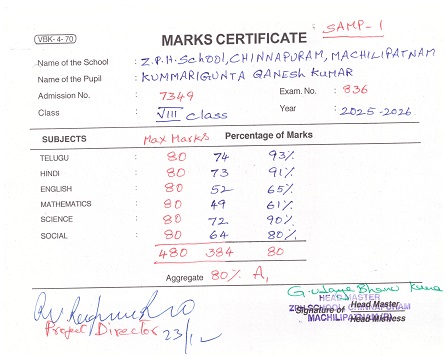 SAMP-1
VBK-4-70
MARKS CERTIFICATE
Name of the School : Z.P.H. School, CHINNAPURAM, MACHILIPATNAM
Name of the Pupil : KUMMARIGUNTA GANESH KUMAR
Admission No. : 7349 Exam. No. : 836
Class : VIII Class Year : 2025-2026
SUBJECTS Max Marks Percentage of Marks
TELUGU : 80 74 93%
HINDI : 80 73 91%
ENGLISH : 80 52 65%
MATHEMATICS : 80 49 61%
SCIENCE : 80 72 90%
SOCIAL : 80 64 80%
480 384 80
Aggregate 80% A1
G. Udaya Bhanu Kumar
HEADMASTER
ZPH SCHOOL, CHINNAPURAM
MACHILIPATNAM
Signature of Head Master
Head Mistress
Project Director
23/12